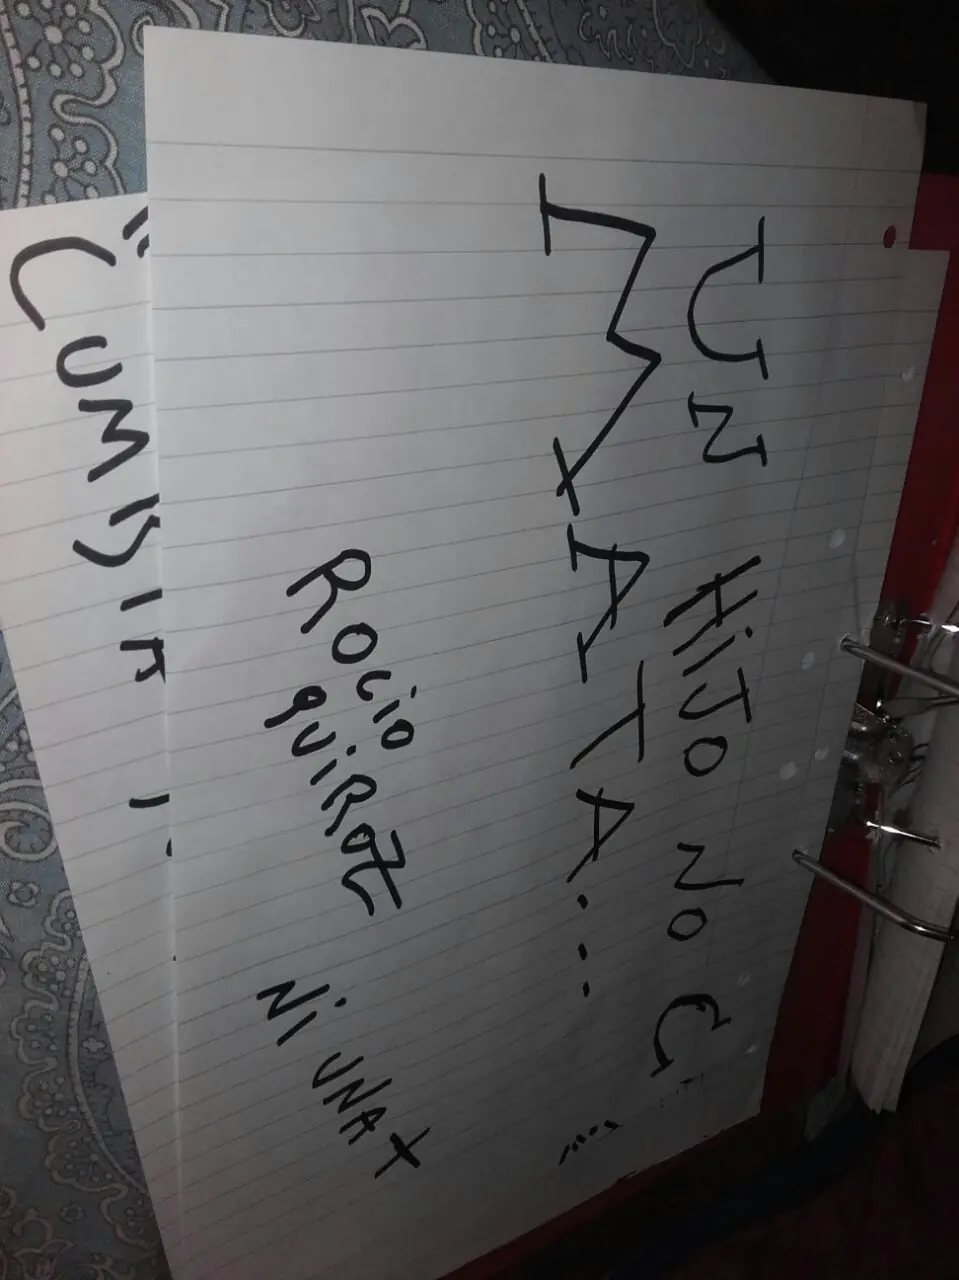 UN HIJO NO C
MATA...
ROCIO
QUIROZ
Ni UNA +
"CUMBiA